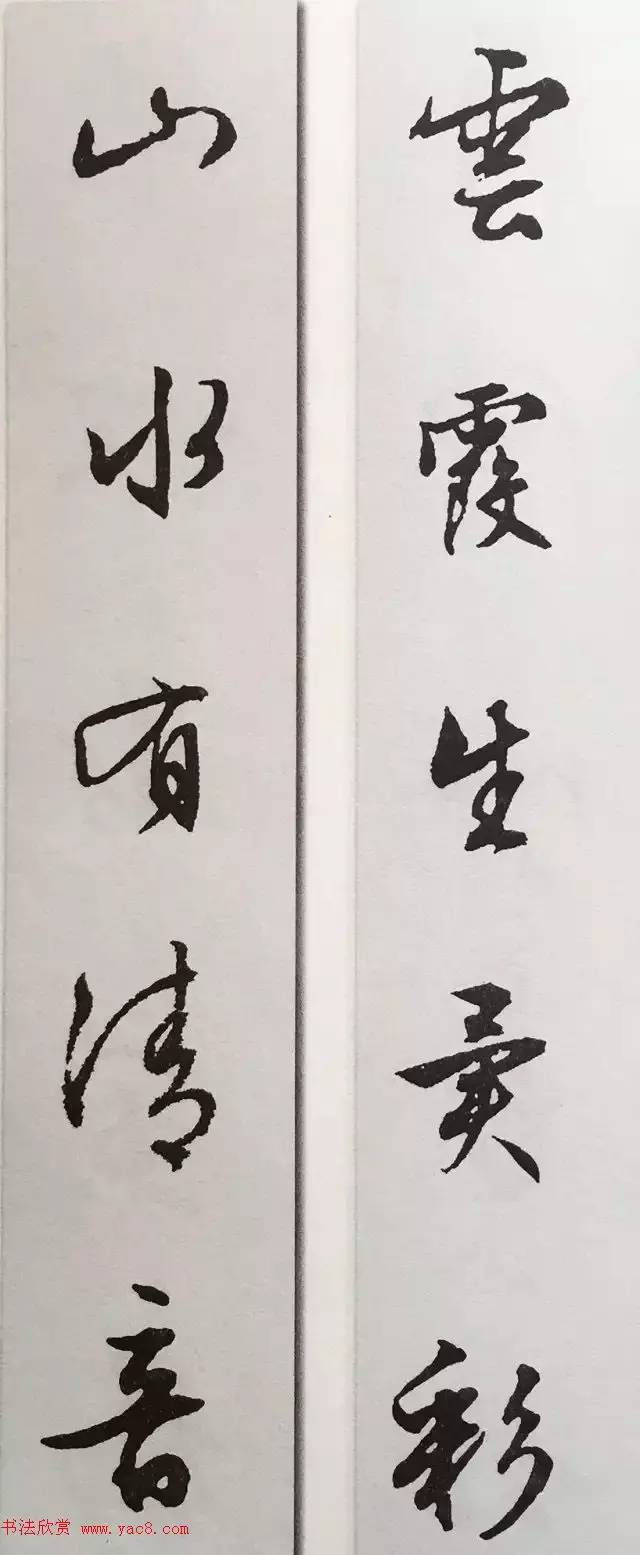 雲霞生異彩
山水有清音
书法欣赏 www.yac8.com